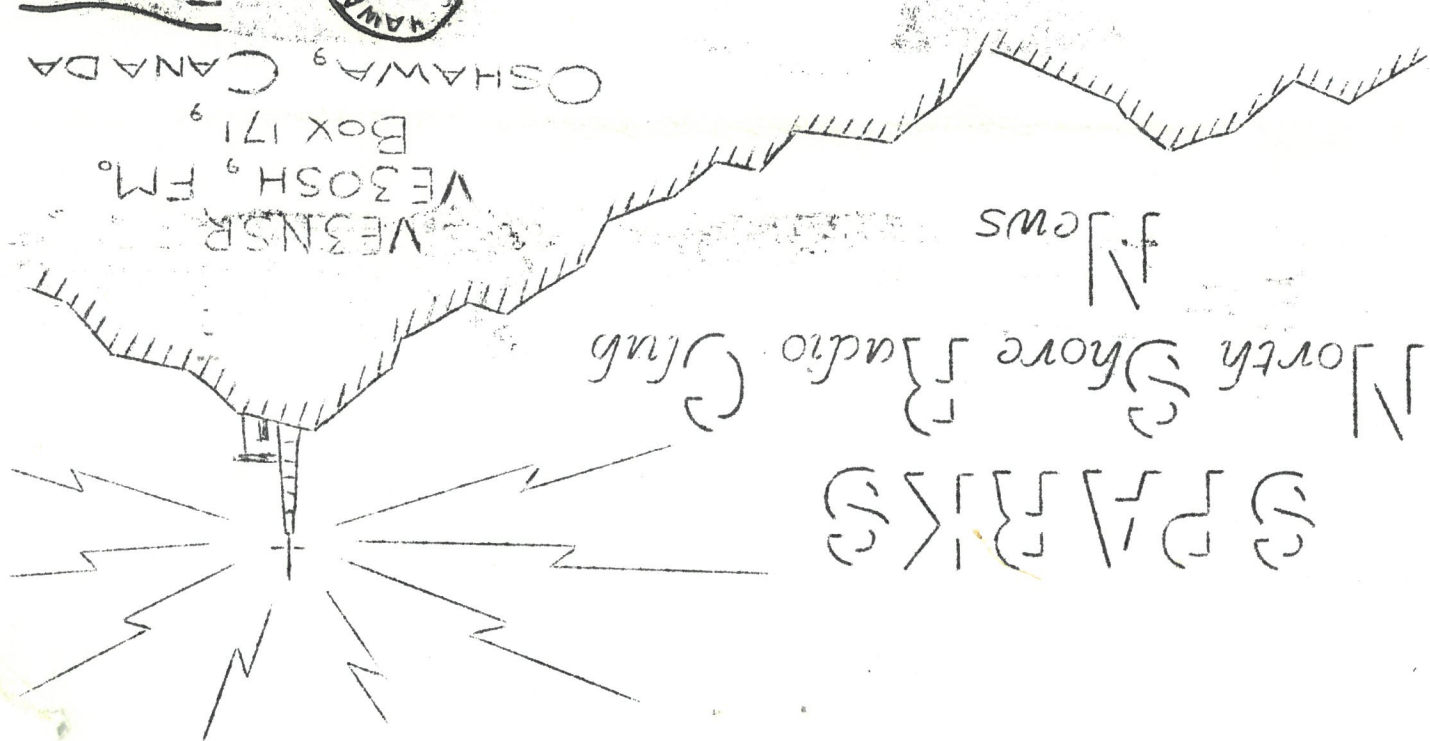 SPARKS
North Shore Radio Club
News
VE3NSR
VE3OSH, FM.
BOX 171,
OSHAWA, CANADA